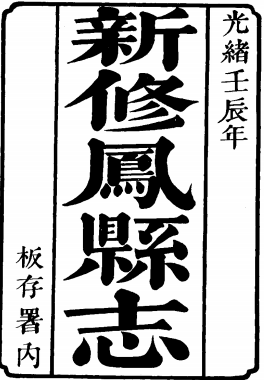 光緒壬辰年
新修鳳縣志
板存署內